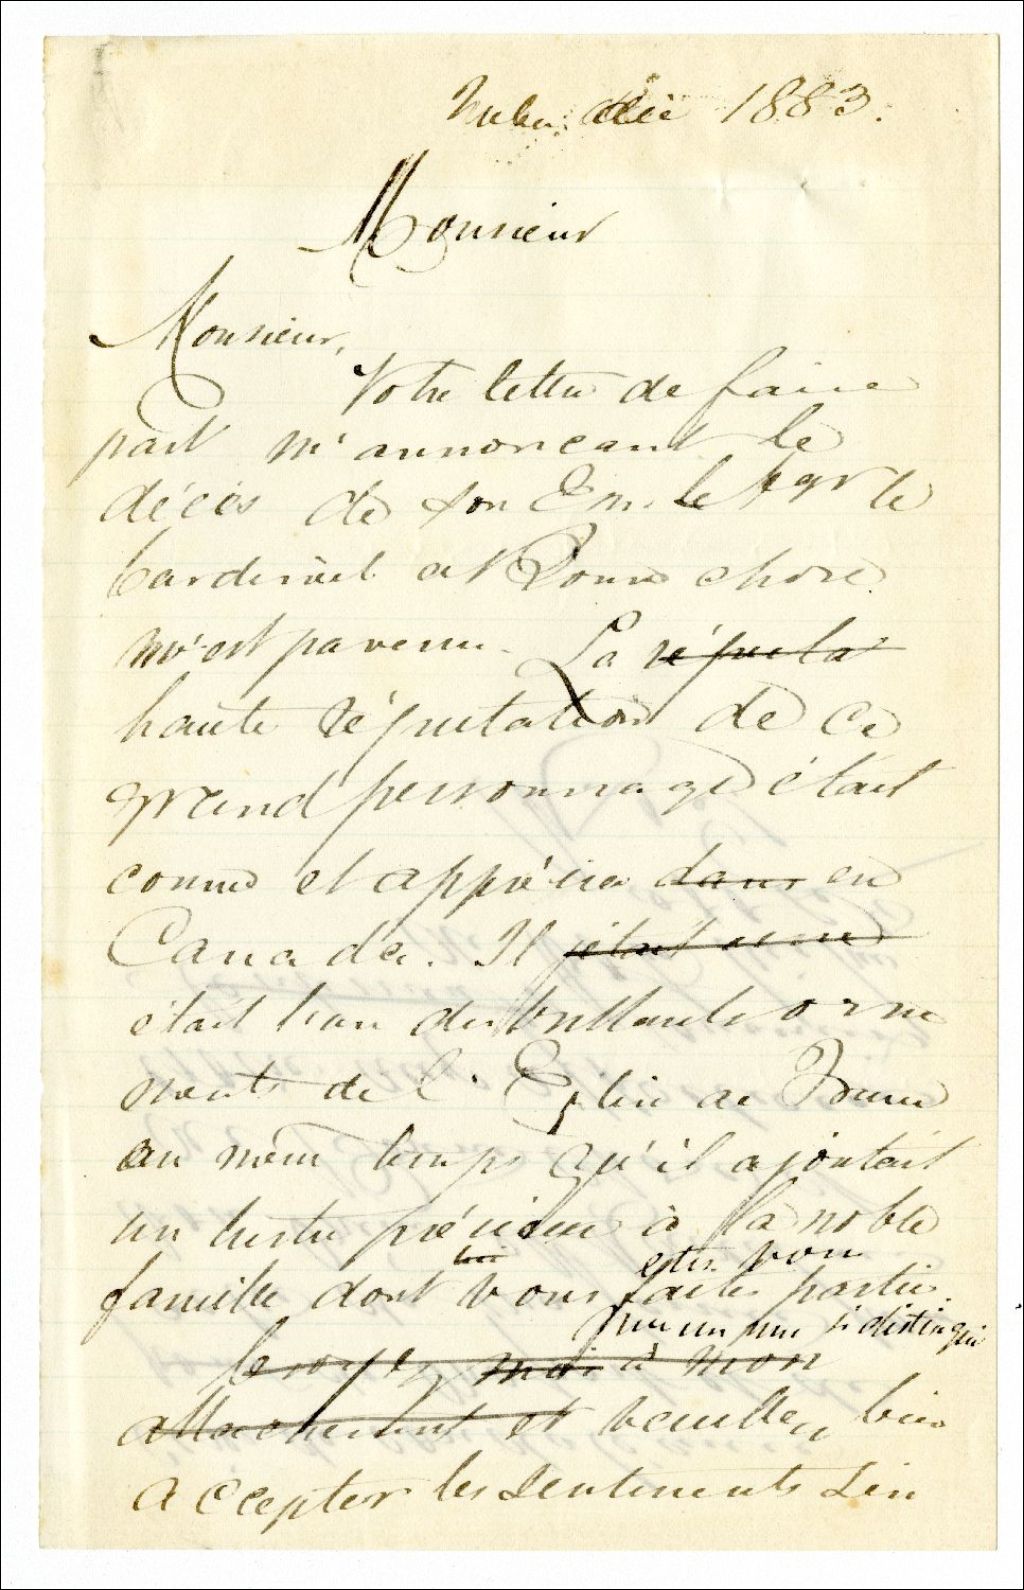 déc 1883.
Monsieur
Monsieur,
Votre lettre de faire
part m'annoncant le
décès de Son Em. le Mgr le
Cardinal de Bonnechose
m'est parvenu. La réputa
haute réputation de ce
grand personnage était
connue et appréciée dans en
Canada. Il était une
était l'un des brillants orne
ments de l'Eglise de France
en même temps qu'il ajoutait
un lustre précieux à la noble
famille dont vous faites partie.
si distingué
Croyez moi à mon
attachement et veuillez bien
accepter les sentiments sin